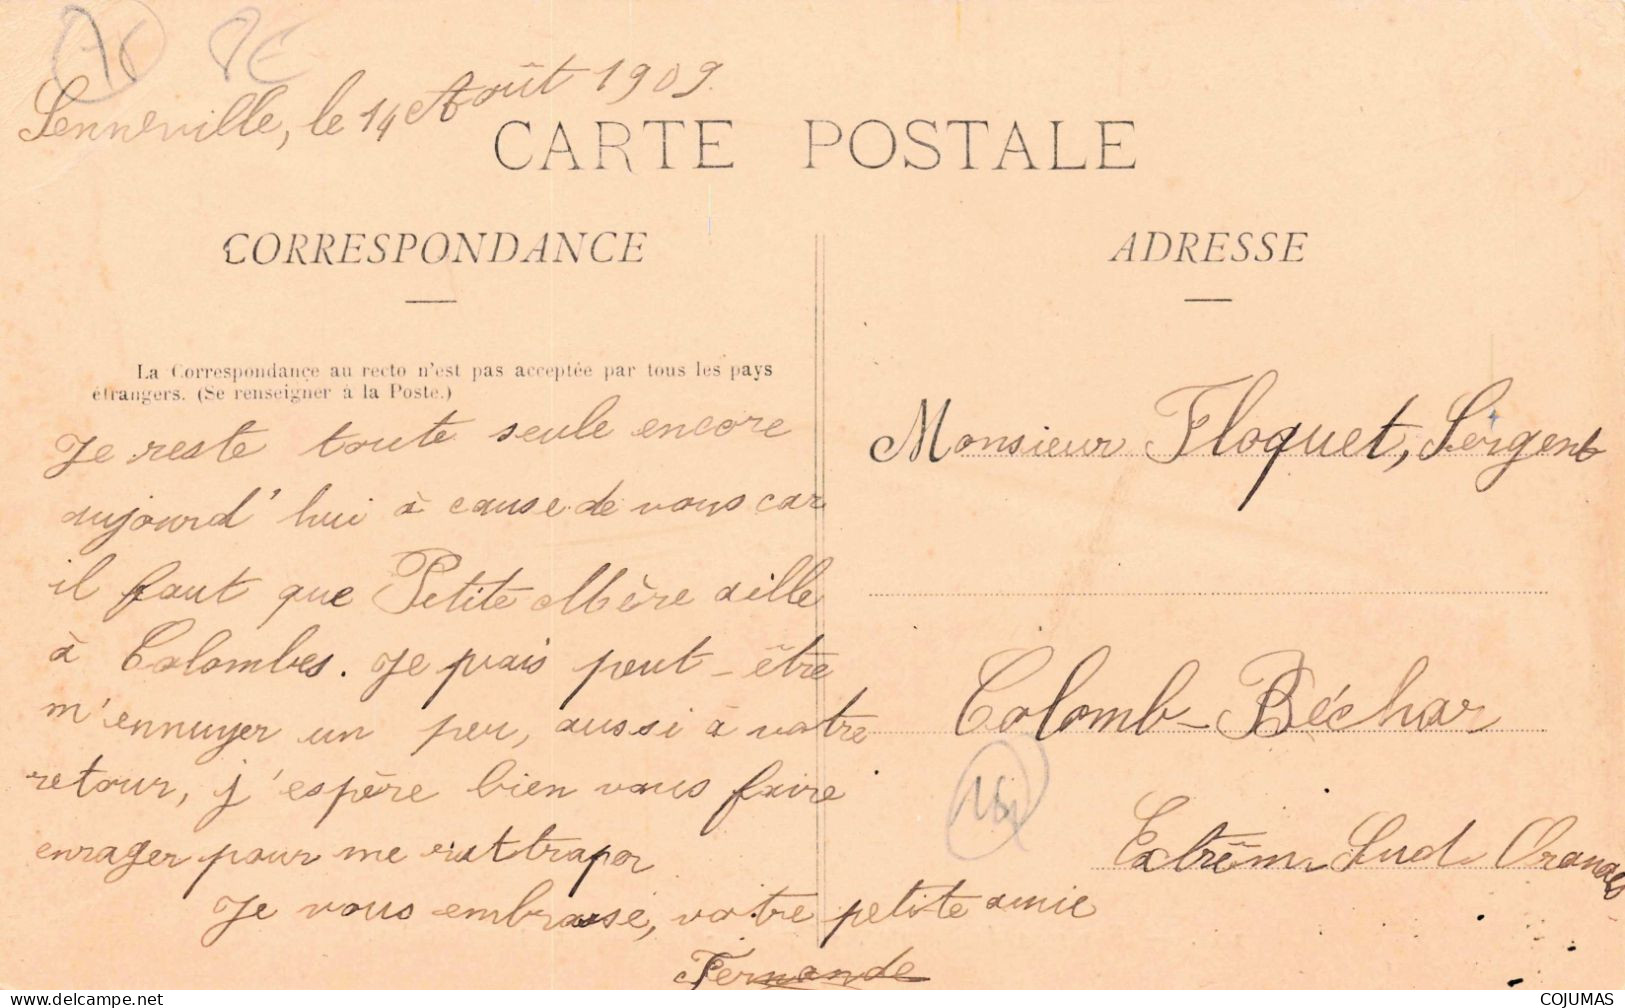 A6 PC
Senneville, le 14 Août 1909.
CARTE POSTALE
CORRESPONDANCE
La Correspondance au recto n'est pas acceptée par tous les pays
étrangers. (Se renseigner à la Poste.)
Je reste toute seule encore
aujourd'hui à cause de vous car
il faut que Petite Mère aille
à Colombes. Je vais peut-être
m'ennuyer un peu, aussi à votre
retour, j'espère bien vous faire
enrager pour me rattraper
Je vous embrasse, votre petite amie
Fernande
ADRESSE
Monsieur Floquet, Sergent
Colomb-Béchar
Extrême Sud Oranais
COJUMAS